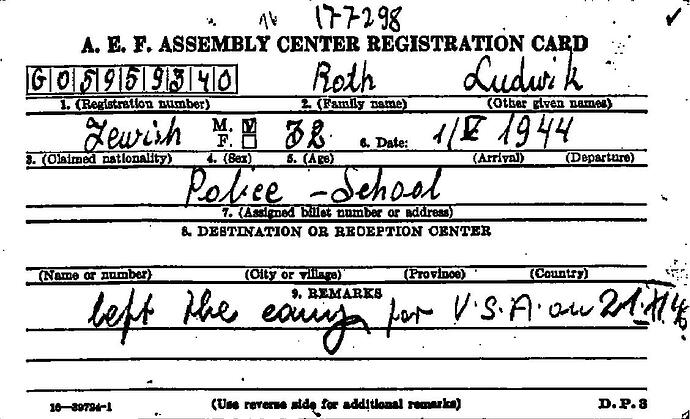 177298
A. E. F. ASSEMBLY CENTER REGISTRATION CARD
G 0 5 9 5 9 3 4 0 Roth Ludwik
1. (Registration number) 2. (Family name) (Other given names)
Jewish M. F. 32 6. Date: 1/V 1944
3. (Claimed nationality) 4. (Sex) 5. (Age) (Arrival) (Departure)
Police - School
7. (Assigned billet number or address)
8. DESTINATION OR RECEPTION CENTER
(Name or number) (City or village) (Province) (Country)
9. REMARKS
left the camp for V.S.A. on
16-39724-1 (Use reverse side for additional remarks) D.P. 3